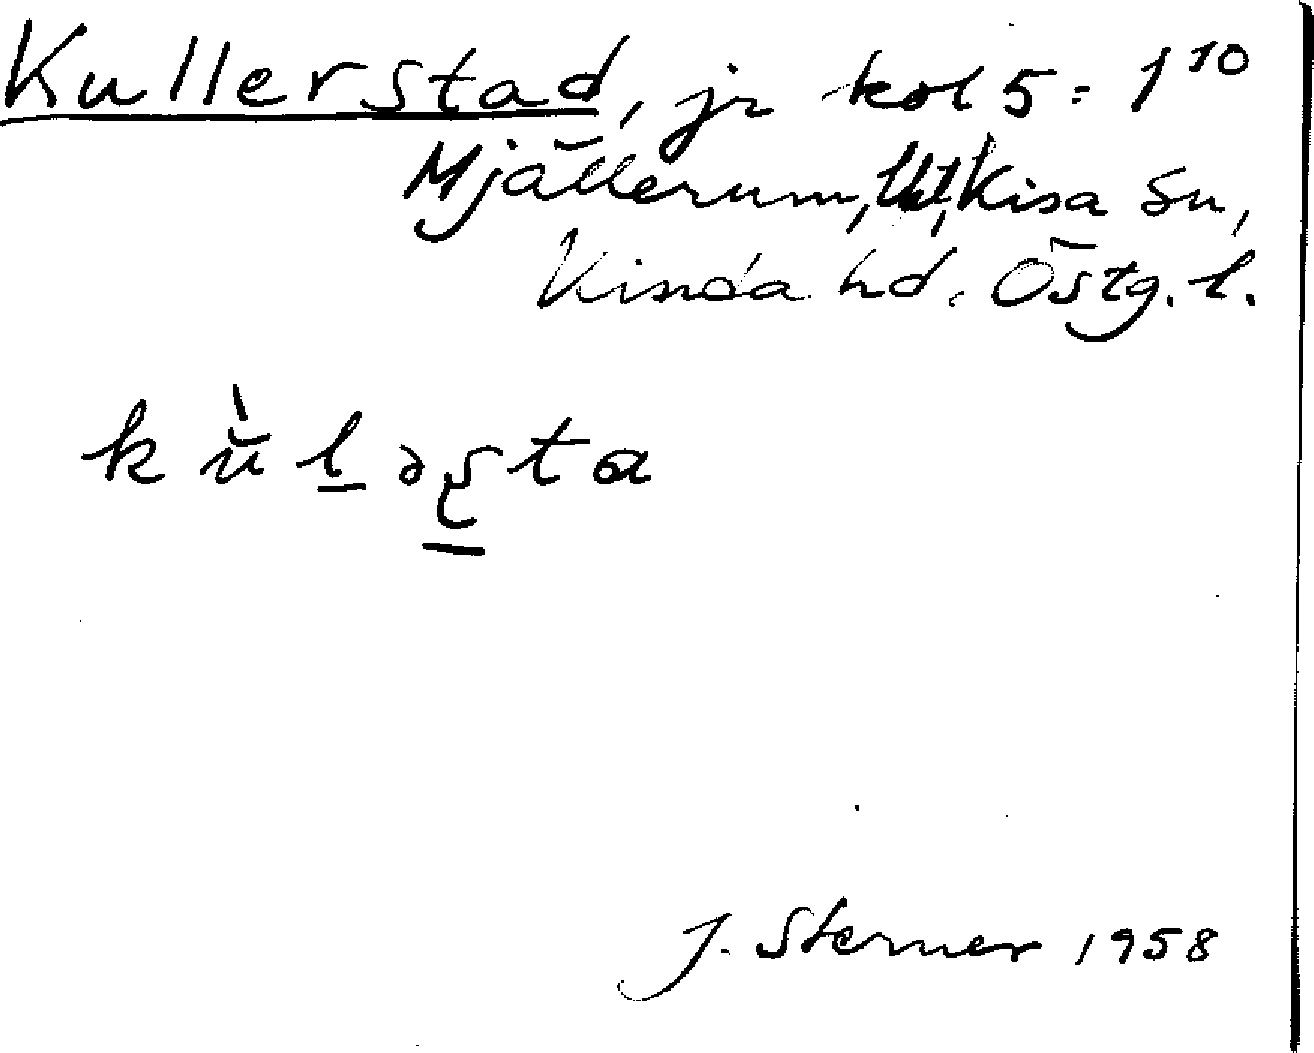 Kullerstad, jr kol 5 = 1 10
Mjällerum, Kisa sn,
Kinda hd. Östg. l.
kùləʂta
J. Sterner 1958